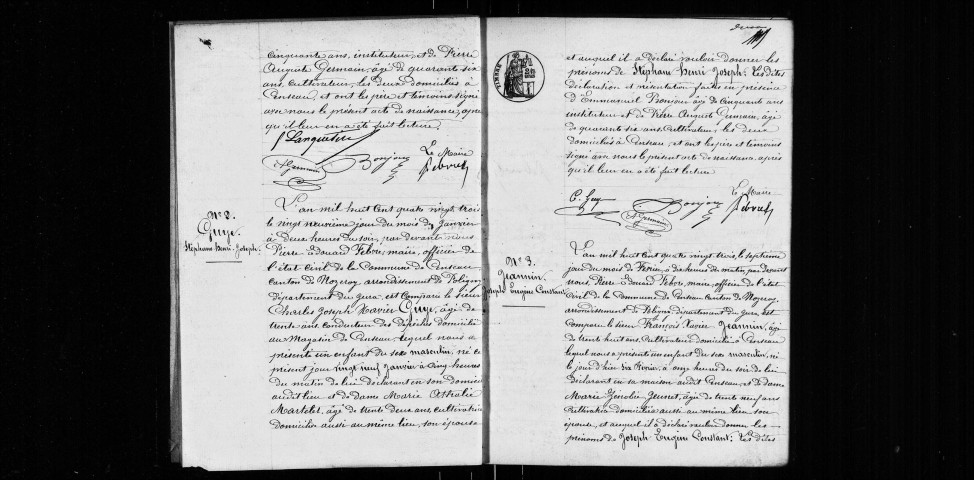 cinquante ans, instituteur, et de Pierre
Auguste Germain, âgé de quarante six
ans, cultivateur, les deux domiciliés à
Censeau, et ont les père et témoins signé
avec nous le présent acte de naissance, après
qu'il leur en a été fait lecture.
Le Maire
A Germain Bonjour Febvret
N° 2.
Guye.
Stéphane Henri Joseph.
L'an mil huit cent quatre vingt trois
le vingt neuvième jour du mois de Janvier
à deux heures du soir, par devant nous
Pierre Edouard Febvre, maire, officier de
l'état civil de la Commune de Censeau
canton de Nozeroy, arrondissement de Poligny
département du Jura, est comparu le sieur
Charles Joseph Xavier Guye, âgé de
trente ans, conducteur des dépêches domicilié
au Magasin de Censeau, lequel nous a
présenté un enfant du sexe masculin, né ce
présent jour vingt neuf Janvier à cinq heures
du matin de lui déclarant en son domicile
audit lieu et de dame Marie Athalie
Martelet, âgé de trente deux ans, cultivatrice
domiciliée aussi au même lieu, son épouse
TIMBRE
et auquel il a déclaré vouloir donner les
prénoms de Stéphane Henri Joseph. Les dites
déclaration et présentation faites en présence
d'Emmanuel Bonjour âgé de cinquante ans
instituteur et de Pierre Auguste Germain, âgé
de quarante six ans, cultivateur, les deux
domiciliés à Censeau, et ont les père et témoins
signé avec nous le présent acte de naissance après
qu'il leur en a été fait lecture
Le Maire
C. Guye A Germain Bonjour Febvret
N° 3.
Jeannin
Joseph Eugène Constant
L'an mil huit cent quatre vingt trois, le septième
jour du mois de Février, à dix heures du matin, par devant
nous, Pierre Edouard Febvre, maire, officier de l'état
civil de la Commune de Censeau, canton de Nozeroy,
arrondissement de Poligny, département du Jura, est
comparu le sieur François Xavier Jeannin, âgé
de trente huit ans, cultivateur domicilié à Censeau
lequel nous a présenté un enfant du sexe masculin, né
le jour d'hier six Février, à onze heures du soir de lui
déclarant en sa maison audit Censeau, et de dame
Marie Zénobie Jeunet, âgée de trente neuf ans
cultivatrice domiciliée aussi au même lieu son
épouse, et auquel il a déclaré vouloir donner les
prénoms de Joseph Eugène Constant. Les dites